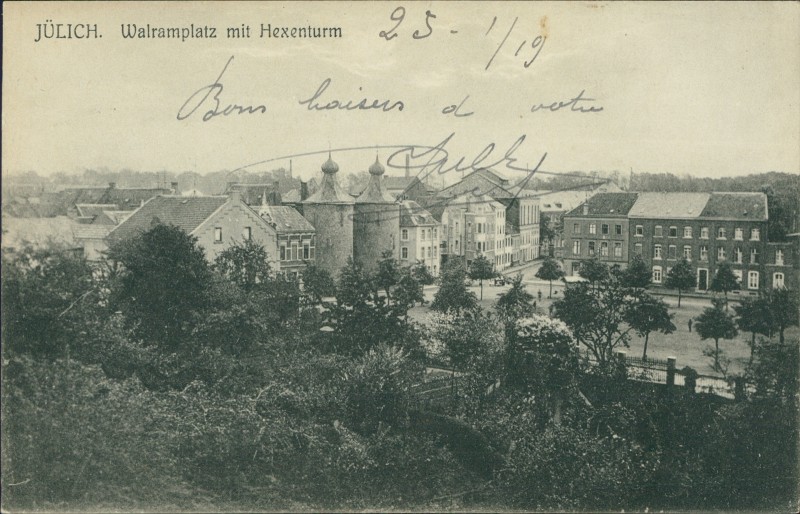 JÜLICH. Walramplatz mit Hexenturm
25-1/19
Bons baisers d votre